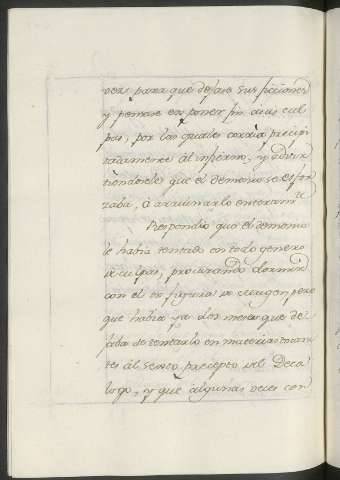 ces para que dejase sus ficciones
y pensase en poner fin a sus cul
pas, por las quales corria precipi
tadamente al infierno, y advir
tiendole que el demonio se esfor
zaba, a arruinarlo enteram.te
Respondio que el demonio
le habia tentado en todo genero
de culpas, procurando dormir
con el en figura de muger, pero
que habia ya dos meses que de
jaba de tentarlo en materias tocan
tes al sexto precepto del Deca
logo, y que algunas veces con